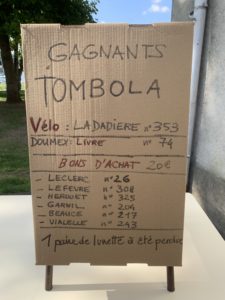 GAGNANTS
TOMBOLA
Vélo : LADADIERE n° 353
DOUMEX: LIVRE n° 74
BONS D'ACHAT 20€
- LECLERC n° 26
- LEFEVRE n° 308
- HERQUET n° 325
- GARNIL n° 204
- BEAUCE n° 217
- VIALELLE n° 243
1 paire de lunette à été perdue